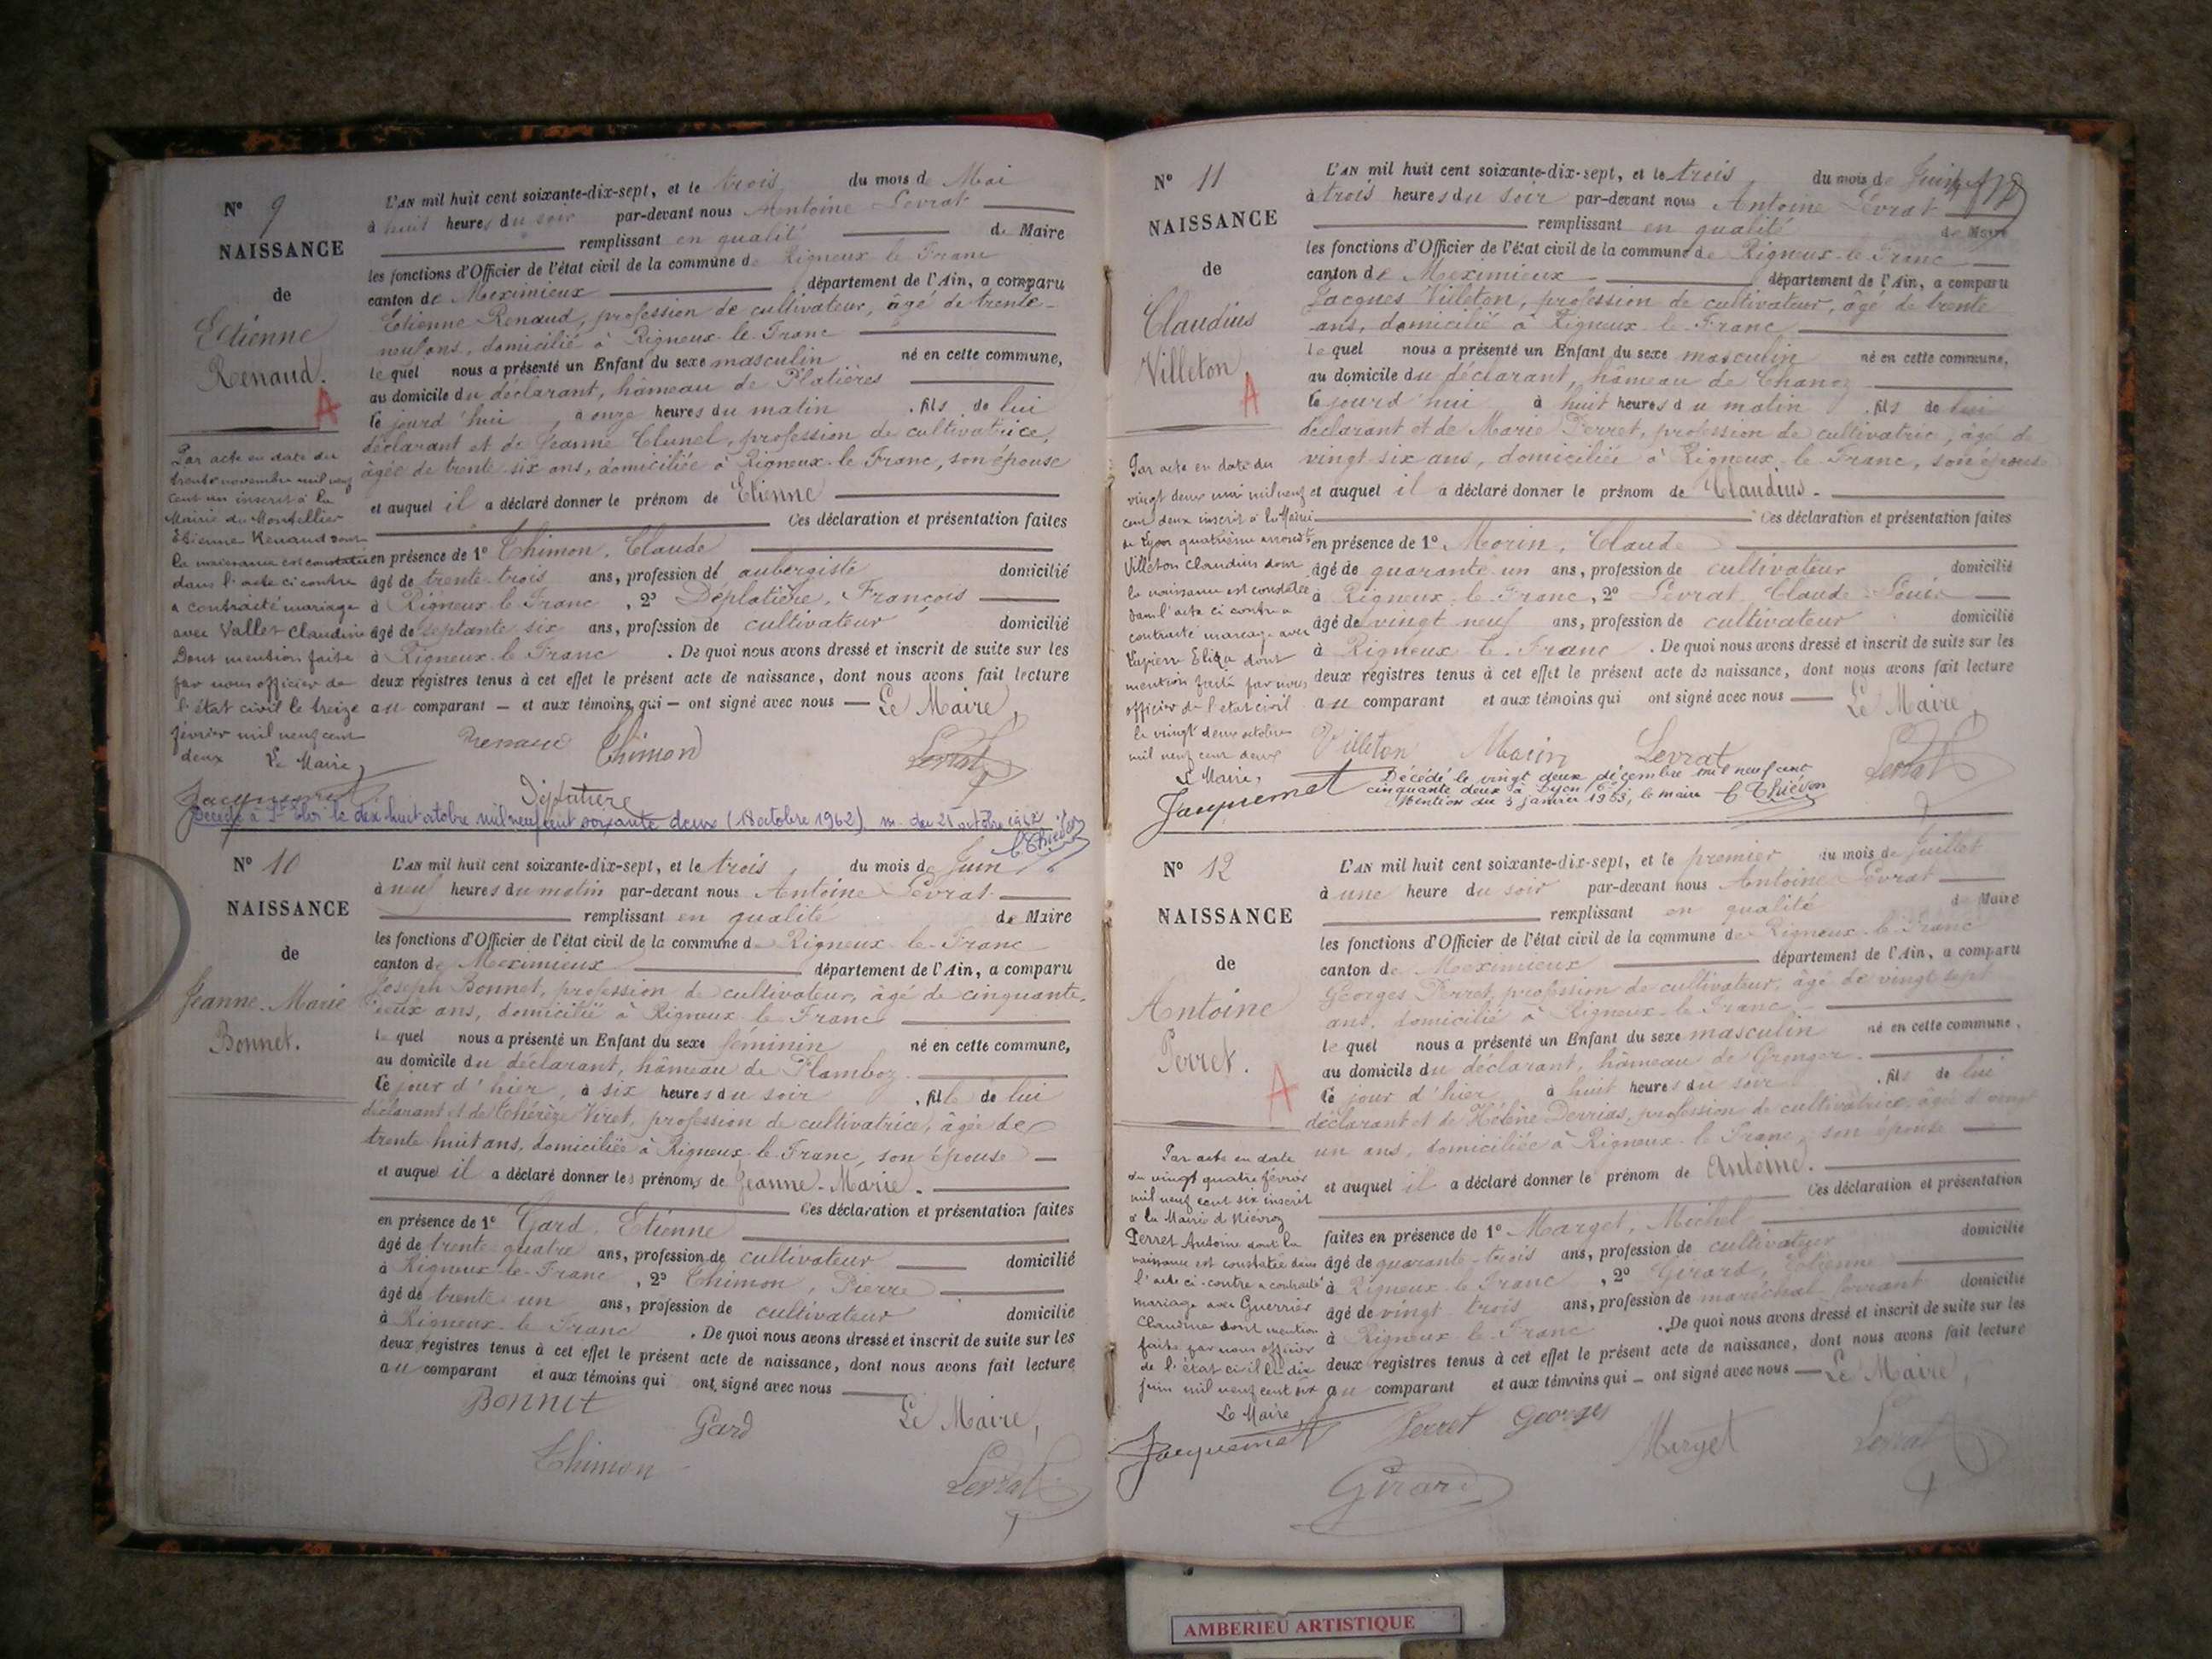 N° 9
NAISSANCE
de
Etienne
Renaud.
A
Par acte en date du
trente novembre mil neuf
cent un inscrit à la
Mairie du Montellier
Etienne Renaud dont
la naissance est constatée
dans l'acte ci contre
a contracté mariage
avec Vallet Claudine
Dont mention faite
par nous officier de
l'état civil le treize
février mil neuf cent
deux Le Maire,
Jacquemet
L'AN mil huit cent soixante-dix-sept, et le trois du mois de Mai
à huit heures du soir par-devant nous Antoine Levrat
remplissant en qualité de Maire
les fonctions d'Officier de l'état civil de la commune de Rigneux le Franc
canton de Meximieux département de l'Ain, a comparu
Etienne Renaud, profession de cultivateur, âgé de trente-
neuf ans, domicilié à Rigneux-le-Franc
lequel nous a présenté un Enfant du sexe masculin né en cette commune,
au domicile du déclarant, hâmeau de Platières
le jourd'hui, à onze heures du matin, fils de lui
déclarant et de Jeanne Clunel, profession de cultivatrice,
âgée de trente six ans, domiciliée à Rigneux-le-Franc, son épouse
et auquel il a déclaré donner le prénom de Etienne
Ces déclaration et présentation faites
en présence de 1° Thimon, Claude
âgé de trente-trois ans, profession de aubergiste domicilié
à Rigneux le Franc, 2° Déplatière, François
âgé de septante six ans, profession de cultivateur domicilié
à Rigneux le Franc. De quoi nous avons dressé et inscrit de suite sur les
deux registres tenus à cet effet le présent acte de naissance, dont nous avons fait lecture
au comparant — et aux témoins qui — ont signé avec nous — Le Maire,
Renaud Thimon Levrat
Déplatière
Décédé à St Eloi le dix huit octobre mil neuf cent soixante deux (18 octobre 1962). m. du 21 octobre 1962
C. Thiévon
N° 10
NAISSANCE
de
Jeanne-Marie
Bonnet.
L'AN mil huit cent soixante-dix-sept, et le trois du mois de Juin
à neuf heures du matin par-devant nous Antoine Levrat
remplissant en qualité de Maire
les fonctions d'Officier de l'état civil de la commune de Rigneux-le-Franc
canton de Meximieux département de l'Ain, a comparu
Joseph Bonnet, profession de cultivateur, âgé de cinquante-
deux ans, domicilié à Rigneux le Franc
lequel nous a présenté un Enfant du sexe féminin né en cette commune,
au domicile du déclarant, hâmeau de Plamboz
le jour d'hier, à six heures du soir, fille de lui
déclarant et de Thérèze Viret, profession de cultivatrice, âgée de
trente huit ans, domiciliée à Rigneux-le-Franc, son épouse
et auquel il a déclaré donner les prénoms de Jeanne-Marie.
Ces déclaration et présentation faites
en présence de 1° Gard, Etienne
âgé de trente-quatre ans, profession de cultivateur domicilié
à Rigneux-le-Franc, 2° Thimon, Pierre
âgé de trente-un ans, profession de cultivateur domicilié
à Rigneux-le Franc. De quoi nous avons dressé et inscrit de suite sur les
deux registres tenus à cet effet le présent acte de naissance, dont nous avons fait lecture
au comparant et aux témoins qui ont signé avec nous
Bonnet Gard Le Maire,
Thimon Levrat
N° 11
NAISSANCE
de
Claudius
Villeton
A
Par acte en date du
vingt deux mai mil neuf
cent deux inscrit à la Mairie
de Lyon quatrième arrondt
Villeton Claudius dont
la naissance est constatée
dans l'acte ci contre a
contracté mariage avec
Lapierre Eliza dont
mention faite par nous
officier de l'état civil
le vingt deux octobre
mil neuf cent deux
Le Maire,
Jacquemet
L'AN mil huit cent soixante-dix-sept, et le trois du mois de Juin
à trois heures du soir par-devant nous Antoine Levrat
remplissant en qualité de Maire
les fonctions d'Officier de l'état civil de la commune de Rigneux-le-Franc
canton de Meximieux département de l'Ain, a comparu
Jacques Villeton, profession de cultivateur, âgé de trente
ans, domicilié à Rigneux le Franc
lequel nous a présenté un Enfant du sexe masculin né en cette commune,
au domicile du déclarant, hâmeau de Chanoz
le jourd'hui à huit heures du matin, fils de lui
déclarant et de Marie Perret, profession de cultivatrice, âgée de
vingt six ans, domiciliée à Rigneux-le-Franc, son épouse
et auquel il a déclaré donner le prénom de Claudius.
Ces déclaration et présentation faites
en présence de 1° Morin, Claude
âgé de quarante un ans, profession de cultivateur domicilié
à Rigneux le Franc, 2° Levrat, Claude-Louis
âgé de vingt neuf ans, profession de cultivateur domicilié
à Rigneux-le-Franc. De quoi nous avons dressé et inscrit de suite sur les
deux registres tenus à cet effet le présent acte de naissance, dont nous avons fait lecture
au comparant et aux témoins qui ont signé avec nous — Le Maire,
Villeton Morin Levrat Levrat
Décédé le vingt deux décembre mil neuf cent
cinquante deux à Lyon (6e)
Mention du 3 janvier 1953, le maire C. Thiévon
N° 12
NAISSANCE
de
Antoine
Perret.
A
Par acte en date
du vingt quatre février
mil neuf cent six inscrit
à la Mairie d Niévroz
Perret Antoine dont la
naissance est constatée dans
l'acte ci-contre a contracté
mariage avec Guerrier
Claudine dont mention
faite par nous officier
de l'état civil le dix
juin mil neuf cent six
Le Maire
Jacquemet
L'AN mil huit cent soixante-dix-sept, et le premier du mois de Juillet
à une heure du soir par-devant nous Antoine Levrat
remplissant en qualité de Maire
les fonctions d'Officier de l'état civil de la commune de Rigneux-le-Franc
canton de Meximieux département de l'Ain, a comparu
Georges Perret, profession de cultivateur, âgé de vingt sept
ans, domicilié à Rigneux-le-Franc
lequel nous a présenté un Enfant du sexe masculin né en cette commune,
au domicile du déclarant, hâmeau de
le jour d'hier à huit heures du soir, fils de lui
déclarant et de Hélène Derrias, profession de cultivatrice, âgée de vingt
un ans, domiciliée à Rigneux-le-Franc, son épouse
et auquel il a déclaré donner le prénom de Antoine.
Ces déclaration et présentation
faites en présence de 1° Marget, Michel
âgé de quarante-trois ans, profession de cultivateur domicilié
à Rigneux le Franc, 2° Girard, Etienne
âgé de vingt trois ans, profession de maréchal ferrant domicilié
à Rigneux le Franc. De quoi nous avons dressé et inscrit de suite sur les
deux registres tenus à cet effet le présent acte de naissance, dont nous avons fait lecture
au comparant et aux témoins qui — ont signé avec nous — Le Maire,
Perret Georges Marget Levrat
Girard
AMBERIEU ARTISTIQUE